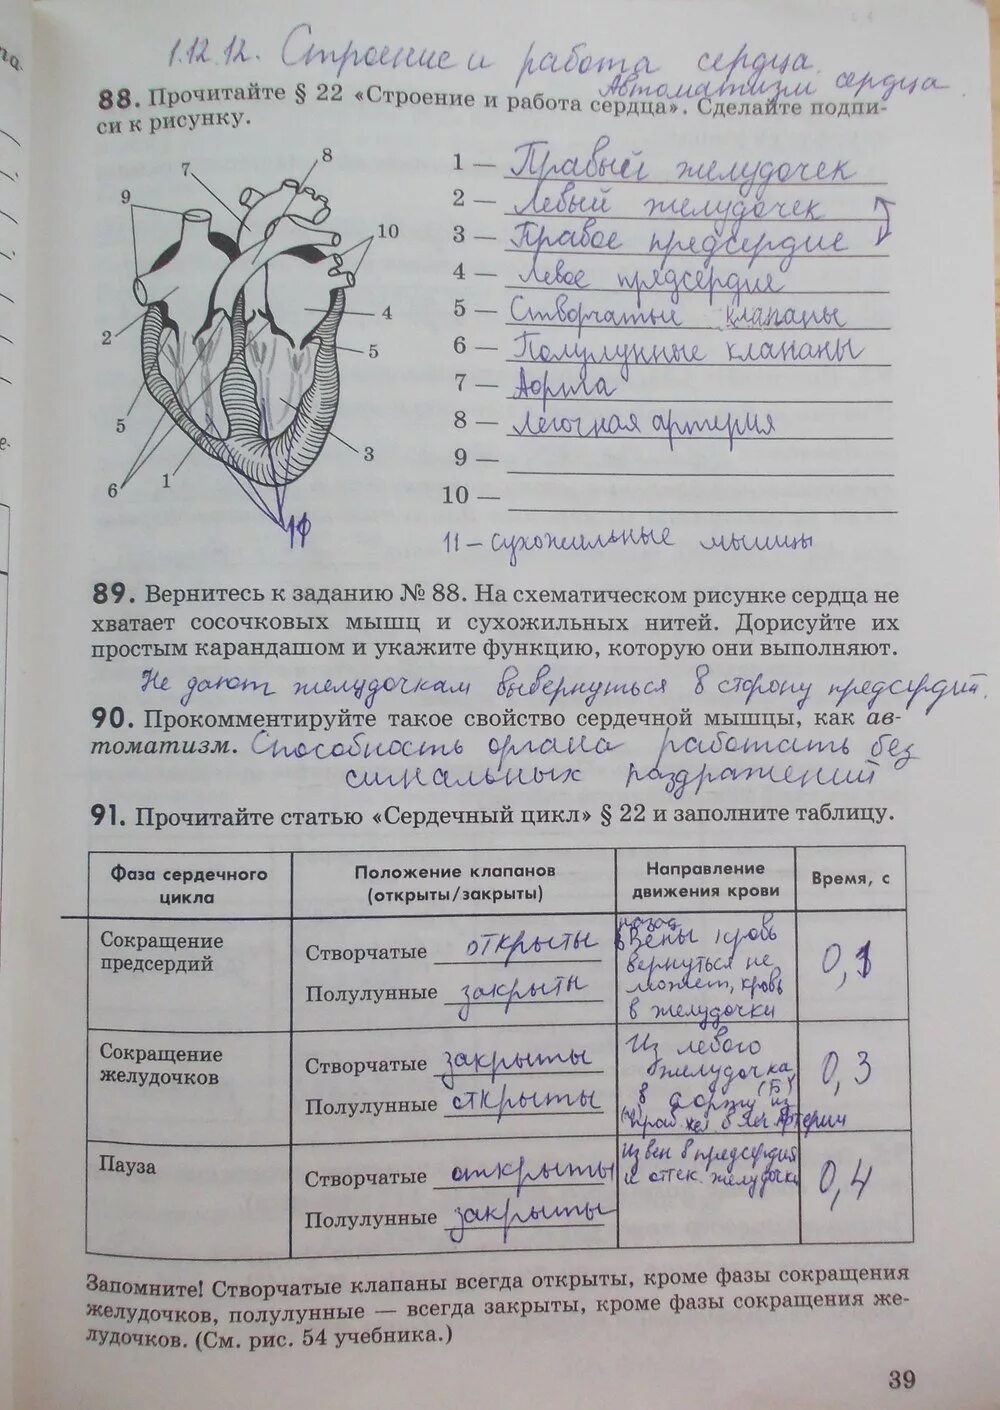 1.12.12. Строение и работа сердца.
Автоматизм сердца
88. Прочитайте § 22 «Строение и работа сердца». Сделайте подпи-
си к рисунку.
7
8
9
10
2
4
5
5
3
6
1
11
1 — Правый желудочек
2 — Левый желудочек
3 — Правое предсердие
4 — Левое предсердие
5 — Створчатые клапаны
6 — Полулунные клапаны
7 — Аорта
8 — Легочная артерия
9 —
10 —
11 – сухожильные мышцы
89. Вернитесь к заданию № 88. На схематическом рисунке сердца не
хватает сосочковых мышц и сухожильных нитей. Дорисуйте их
простым карандашом и укажите функцию, которую они выполняют.
Не дают желудочкам вывернуться в сторону предсердий.
90. Прокомментируйте такое свойство сердечной мышцы, как ав-
томатизм. Способность органа работать без
сигнальных раздражений
91. Прочитайте статью «Сердечный цикл» § 22 и заполните таблицу.
Фаза сердечного цикла
Положение клапанов (открыты/закрыты)
Направление движения крови
Время, с
Сокращение предсердий
Створчатые открыты
Полулунные закрыты
назад
в Вены кровь
вернуться не
может, кровь
в желудочки
0,1
Сокращение желудочков
Створчатые закрыты
Полулунные открыты
Из левого
желудочка
в аорту (Б)
из прав. жел. в лег. артерии
0,3
Пауза
Створчатые открыты
Полулунные закрыты
Из вен в предсердия
и желудочки
0,4
Запомните! Створчатые клапаны всегда открыты, кроме фазы сокращения
желудочков, полулунные — всегда закрыты, кроме фазы сокращения же-
лудочков. (См. рис. 54 учебника.)
39